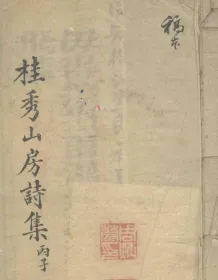 稿本
桂秀山房詩集 丙子